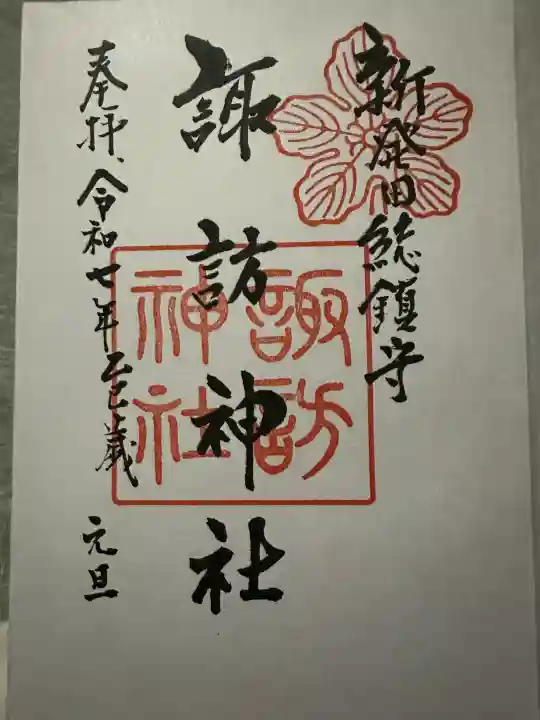 新発田総鎮守
諏訪神社
諏訪
神社
奉拝、令和七年乙巳歳 元旦